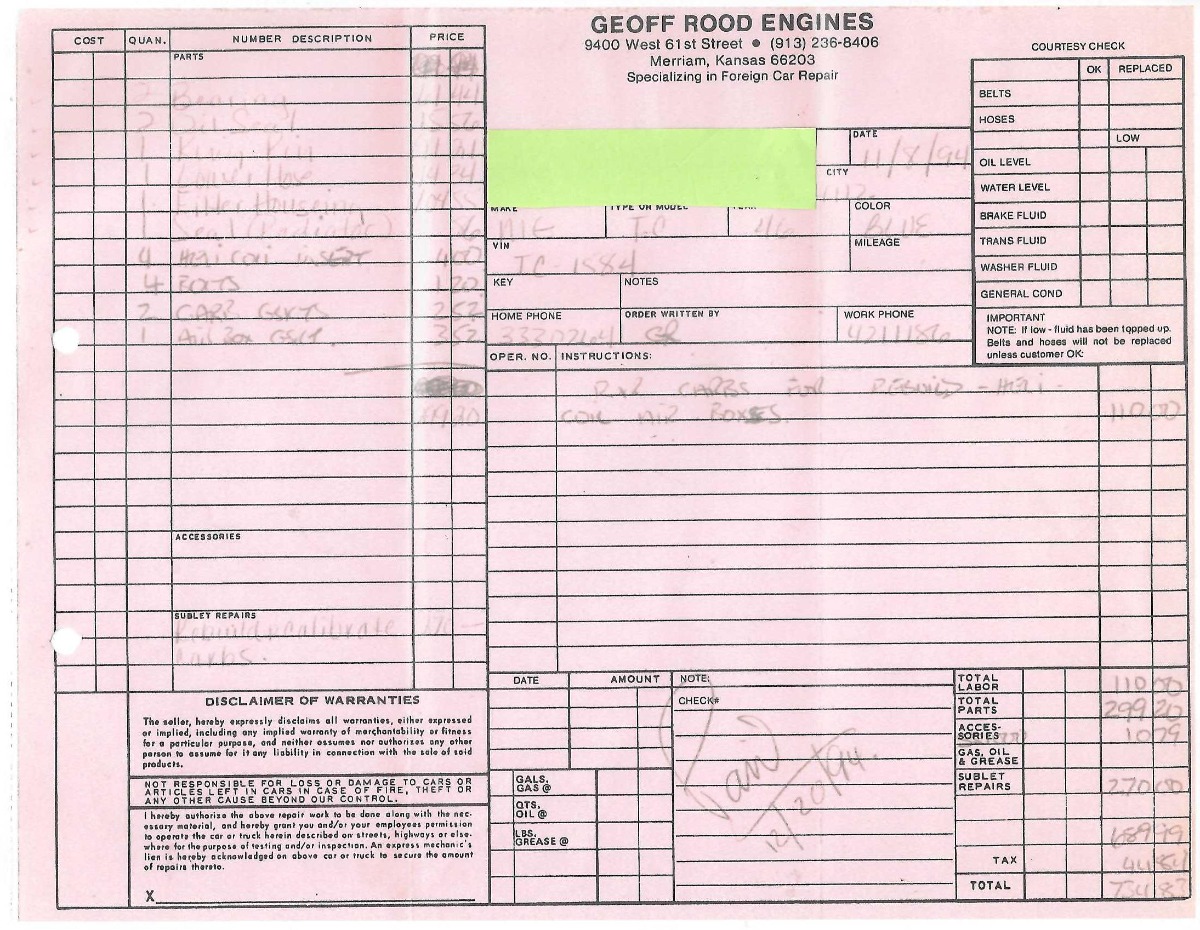 GEOFF ROOD ENGINES
9400 West 61st Street ● (913) 236-8406
Merriam, Kansas 66203
Specializing in Foreign Car Repair
COST QUAN. NUMBER DESCRIPTION PRICE
PARTS
Bearing
2 Oil Seal
1
1 Hose
1 Filter Houseing
1 Seal (Radiator)
4 HELI COIL INSERT 4 00
4 BOLTS 1 20
2 CARB GSKTS 2 52
1 AIR BOX GSKT. 3 52
ACCESSORIES
SUBLET REPAIRS
Rebuild & calibrate 270 —
carbs.
DATE 11/8/94
CITY
MAKE TYPE OR MODEL YEAR COLOR
MG TC 46 BLUE
VIN MILEAGE
TC-1584
KEY NOTES
HOME PHONE ORDER WRITTEN BY WORK PHONE
GR
OPER. NO. INSTRUCTIONS:
R&R CARBS FOR REBUILD - HELI-
COIL AIR BOXES. 110 00
COURTESY CHECK
OK REPLACED
BELTS
HOSES
LOW
OIL LEVEL
WATER LEVEL
BRAKE FLUID
TRANS FLUID
WASHER FLUID
GENERAL COND
IMPORTANT
NOTE: If low - fluid has been topped up.
Belts and hoses will not be replaced
unless customer OK:
DISCLAIMER OF WARRANTIES
The seller, hereby expressly disclaims all warranties, either expressed
or implied, including any implied warranty of merchantability or fitness
for a particular purpose, and neither assumes nor authorizes any other
person to assume for it any liability in connection with the sale of said
products.
NOT RESPONSIBLE FOR LOSS OR DAMAGE TO CARS OR
ARTICLES LEFT IN CARS IN CASE OF FIRE, THEFT OR
ANY OTHER CAUSE BEYOND OUR CONTROL.
I hereby authorize the above repair work to be done along with the nec-
essary material, and hereby grant you and/or your employees permission
to operate the car or truck herein described on streets, highways or else-
where for the purpose of testing and/or inspection. An express mechanic's
lien is hereby acknowledged on above car or truck to secure the amount
of repairs thereto.
X
DATE AMOUNT
GALS.
GAS @
QTS.
OIL @
LBS.
GREASE @
NOTE:
CHECK#
Paid
12/20/94.
TOTAL
LABOR 110 00
TOTAL
PARTS 299 20
ACCES-
SORIES 10 79
GAS, OIL
& GREASE
SUBLET
REPAIRS 270 00
689 99
TAX 44 84
TOTAL 734 83